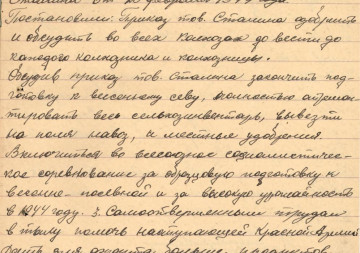 Сталина от 2 февраля 1944 года.
Постановили: Приказ тов. Сталина одобрить
и обсудить во всех колхозах довести до
каждого колхозника и колхозницы.
Обсудив приказ тов. Сталина закончить под-
готовку к весеннему севу, полностью отремон-
тировать весь сельхозинвентарь, вывезти
на поля навоз, и местные удобрения.
Включиться во всесоюзное социалистичес-
кое соревнование за образцовую подготовку к
весенне-посевной и за высокую урожайность
в 1944 году. 3. Самоотверженным трудом
в тылу помочь наступающей Красной Армии
Дать для фронта больше продуктов